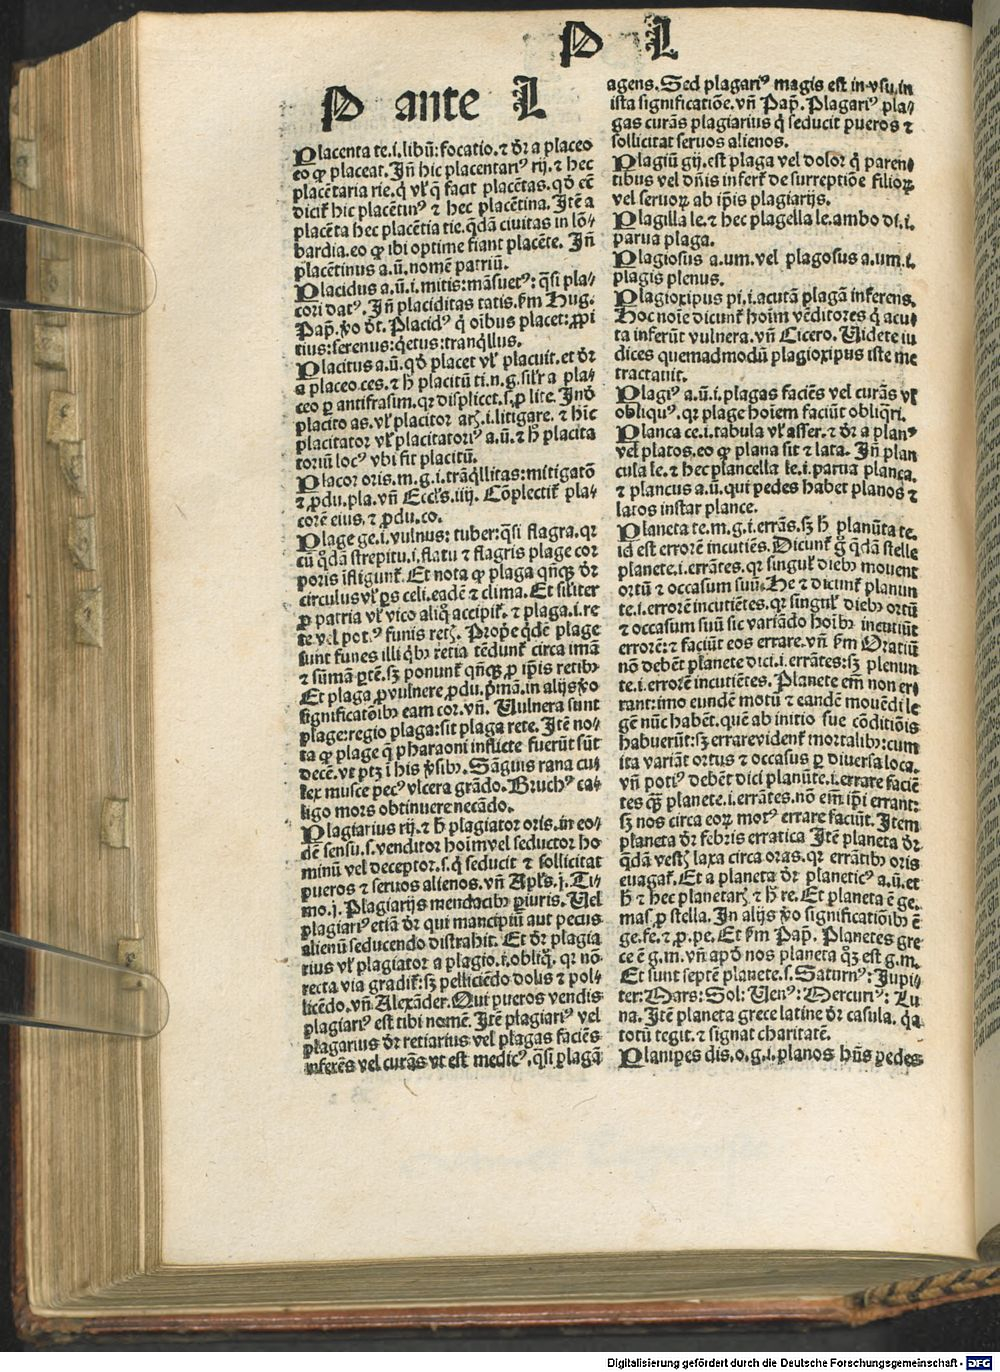 P L
P ante L
Placenta te.i.libū:focatio.⁊ dr̄ a placeo
eo ꝙ placeat. Jn̄ hic placentariꝰ rij.⁊ hec
placētaria rie.q̇ vl̓ q̄ facit placētas.qd̓ eē
dicit̃ hic placētinꝰ ⁊ hec placētina. Jtē a
placēta hec placētia tie.q̄dā civitas in lō-
bardia.eo ꝙ ibi optime fiant placēte. Jn̄
placētinus a.ū.nomē patriū.
Placidus a.ū.i.mitis:māsuetꝰ: q̄si pla-
cori datꝰ. Jn̄ placiditas tatis.ẜm Hug.
Pap̄.ꝟo dt̄. Placidꝰ q̇ oībus placet:ꝓpi
tius:serenus:q̇etus:tranq̇llus.
Placitus a.ū.qd̓ placet vl̓ placuit.et dr̄
a placeo.ces.⁊ h̓ placitū ti.n.g.sil̓r a pla-
ceo ꝑ antifrasim.qꝛ displicet.s.ꝓ lite. Jnd̓
placito as.vl̓ placitor aris.i.litigare.⁊ hic
placitator vl̓ placitatoriꝰ a.ū.⁊ h̓ placita
toriū locꝰ vbi fit placitū.
Placor oris.m.g.i.trāq̇llitas:mitigatō
⁊ ꝓdu.pla.vn̄ Eccl̓s.iiij. Cōplectit̃ pla-
corē eius.⁊ ꝓdu.co.
Plage ge.i.vulnus: tuber:q̄si flagra.qꝛ
cū q̇dā strepitu.i.flatu ⁊ flagris plage cor
poris īfligunt̃. Et nota ꝙ plaga qn̄qꝫ dr̄
circulus vl̓ ꝑs celi.eadē ⁊ clima. Et sil̓iter
ꝓ patria vl̓ vico aliq̇ accipit̃.⁊ plaga.i.re
te vel potꝰ funis retis. Prop̓e q̇dē plage
sunt funes illi q̇bꝫ retia tēdunt̃ circa imā
⁊ sūmā ꝑtē.sꝫ ponunt̃ qn̄qꝫ ꝓ ip̄is retibꝫ
Et plaga ꝓ vulnere ꝓdu.p̓mā.in alijs ꝟo
significatōibꝫ eam cor.vn̄. Vulnera sunt
plage:regio plaga:sit plaga rete. Jtē no-
ta ꝙ plage q̄ pharaoni inflicte fuerūt sūt
decē.vt ptꝫ ī his ꝟsibꝫ. Sāguis rana cu
lex musce pecꝰ vlcera grādo. Bruchꝰ ca-
ligo mors obtinuere necādo.
Plagiarius rij.⁊ h̓ plagiator oris.in eo-
dē sensu.s.venditor hoīmvel seductor ho
minū vel deceptor.s.q̇ seducit ⁊ sollicitat
pueros ⁊ seruos alienos.vn̄ Apl̓s.j. Ti-
mo.j. Plagiarijs mendacibꝫ ꝑiuris. Vel
plagiariꝰ etiā dr̄ qui mancipiū aut pecus
alienū seducendo distrahit. Et dr̄ plagia
rius vl̓ plagiator a plagio.i.obliq̇. qꝛ nō
recta via gradit̃:sꝫ pelliciēdo dolis ⁊ pol-
licēdo.vn̄ Alexāder. Qui pueros vendis
plagiariꝰ est tibi nomē. Jtē plagiariꝰ vel
plagarius dr̄ retiarius vel plagas faciēs
inferēs vel curās vt est medicꝰ.q̄si plagā
agens. Sed plagariꝰ magis est in vsu in
ista significatiōe.vn̄ Pap̄. Plagariꝰ pla-
gas curās plagiarius q̇ seducit pueros ⁊
sollicitat seruos alienos.
Plagiū gij.est plaga vel dolor q̇ paren-
tibus vel dn̄is infert̃ de surreptiōe filioꝝ
vel seruoꝝ ab ip̄is plagiarijs.
Plagilla le.⁊ hec plagella le.ambo di.i.
parua plaga.
Plagiosus a.um.vel plagosus a.um.i.
plagis plenus.
Plagioxipus pi.i.acutā plagā inferens.
Hoc noīe dicunt̃ hoīm vēditores q̇ acu-
ta inferūt vulnera.vn̄ Cicero. Videte iu
dices quemadmodū plagioxipus iste me
tractauit.
Plagiꝰ a.ū.i.plagas faciēs vel curās vl̓
obliquꝰ.qꝛ plage hoīem faciūt obliq̄ri.
Planca ce.i.tabula vl̓ asser.⁊ dr̄ a planꝰ
vel platos.eo ꝙ plana sit ⁊ lata. Jn̄ plan
cula le.⁊ hec plancella le.i.parua planca.
⁊ plancus a.ū.qui pedes habet planos ⁊
latos instar plance.
Planeta te.m.g.i.errās.sꝫ h̓ planūta te.
id est errorē incutiēs. Dicunt̃ g̊ q̄dā stelle
planete.i.errātes.qꝛ singul̓ diebꝫ mouent
ortū ⁊ occasum suū. He ⁊ dicunt̃ planun
te.i.errorē incutiētes.qꝛ singul̓ diebꝫ ortū
⁊ occasum suū sic variādo hoībꝫ incutiūt
errorē:⁊ faciūt eos errare.vn̄ ẜm Oratiū
nō debēt planete dici.i.errātes:sꝫ plenun
te.i.errorē incutiētes. Planete em̄ non er-
rant:imo eundē motū ⁊ eandē mouēdi le
gē nūc habēt.quē ab initio sue cōditiōis
habuerūt:sꝫ errare vident̃ mortalibꝫ:cum
ita variāt ortus ⁊ occasus ꝑ diuersa loca.
vn̄ potiꝰ debēt dici planūte.i.errare faciē
tes qꝫ̄ planete.i.errātes.nō em̄ ip̄i errant:
sꝫ nos circa eoꝝ motꝰ errare faciūt. Jtem
planeta dr̄ febris erratica Jtē planeta dr̄
q̄dā vestis laxa circa oras.qꝛ errātibꝫ oris
euagat̃. Et a planeta dr̄ planeticꝰ a.ū.et
h̓ ⁊ hec planetaris ⁊ h̓ re. Et planeta ē ge.
mas.ꝓ stella. Jn alijs ꝟo significatiōibꝫ ē
ge.fe.⁊ ꝓ.pe. Et ẜm Pap̄. Planetes gre
ce ē g.m.vn̄ apd̓ nos planeta qꝫ̊ est g.m.
Et sunt septē planete.s. Saturnꝰ: Jupi-
ter:Mars:Sol:Venꝰ:Mercuriꝰ: Lu
na. Jtē planeta grece latine dr̄ casula. q̄a
totū tegit.⁊ signat charitatē.
Planipes dis.o.g.i.planos hn̄s pedes
Digitalisierung gefördert durch die Deutsche Forschungsgemeinschaft - DFG